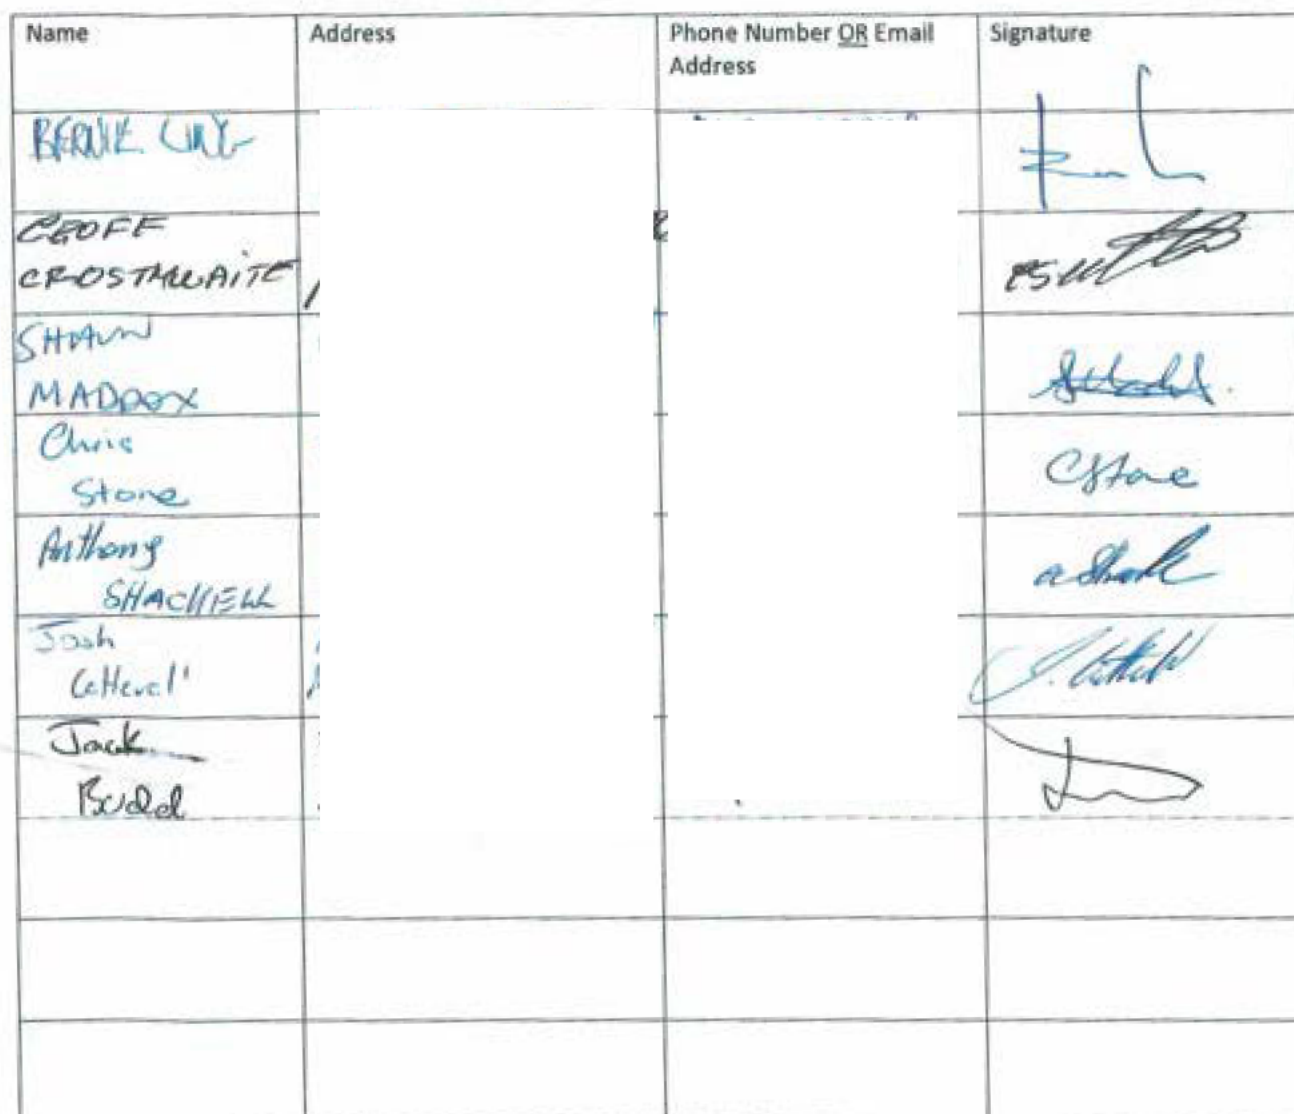 Name Address Phone Number OR Email Address Signature
BERNIE LING
GEOFF
CROSTHWAITE
SHAUN
MADDOX
Chris
Stone
CStone
Anthony
SHACKELL
Josh
Jack
Budd